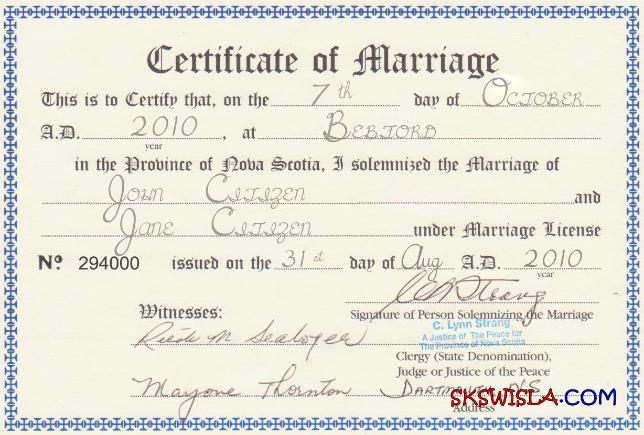 Certificate of Marriage
This is to Certify that, on the 7th day of October
A.D. 2010, at Bedford
year
in the Province of Nova Scotia, I solemnized the Marriage of
John Citizen and
Jane Citizen under Marriage License
No. 294000 issued on the 31st day of Aug A.D. 2010
year
Witnesses:
Strang
Signature of Person Solemnizing the Marriage
C. Lynn Strang
A Justice of the Peace for
The Province of Nova Scotia
Clergy (State Denomination),
Judge or Justice of the Peace
Marjorie Thornton
Dartmouth NS
Address
SKSWISLA.COM